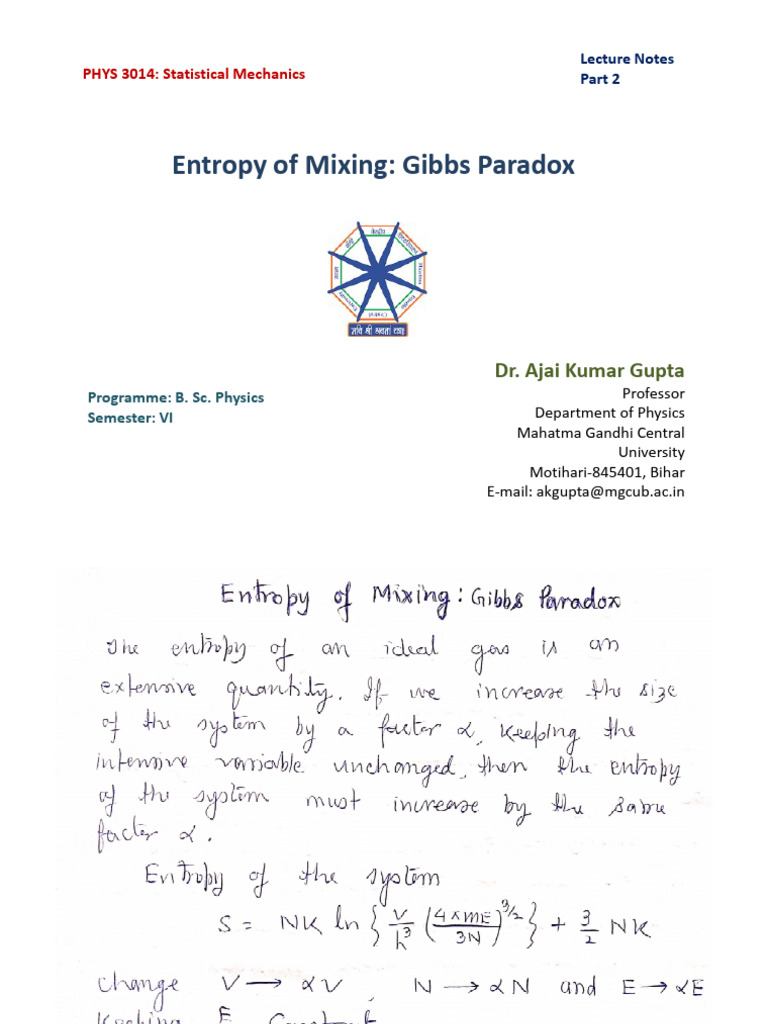 PHYS 3014: Statistical Mechanics
Lecture Notes
Part 2
Entropy of Mixing: Gibbs Paradox
Dr. Ajai Kumar Gupta
Professor
Department of Physics
Mahatma Gandhi Central
University
Motihari-845401, Bihar
E-mail: akgupta@mgcub.ac.in
Programme: B. Sc. Physics
Semester: VI
Entropy of Mixing: Gibbs Paradox
The entropy of an ideal gas is an
extensive quantity. If we increase the size
of the system by a factor α, keeping the
intensive variable unchanged, then the entropy
of the system must increase by the same
factor α.
Entropy of the system
S = NK ln { V/h³ (4πmE/3N)^3/2 } + 3/2 NK
Change V → αV, N → αN and E → αE
Keeping E Constant